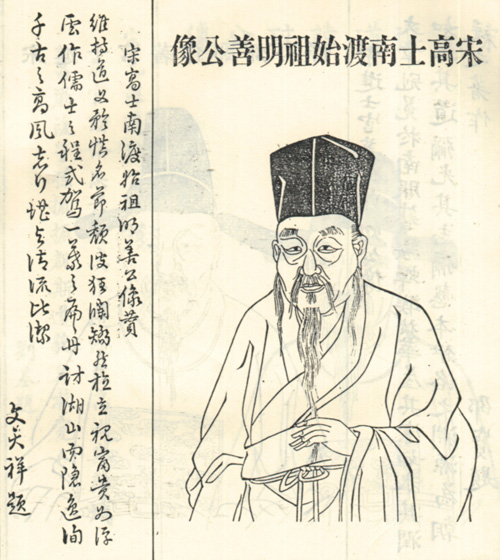 宋高士南渡始祖明善公像
宋高士南渡始祖明善公像贊
維持道义矜惜名節頹波狂瀾矯然植立視富貴如浮
雲作儒士之程式駕一葉之扁舟訪湖山而隱逸洵
千古之高風行堪与清流比潔
文天祥題